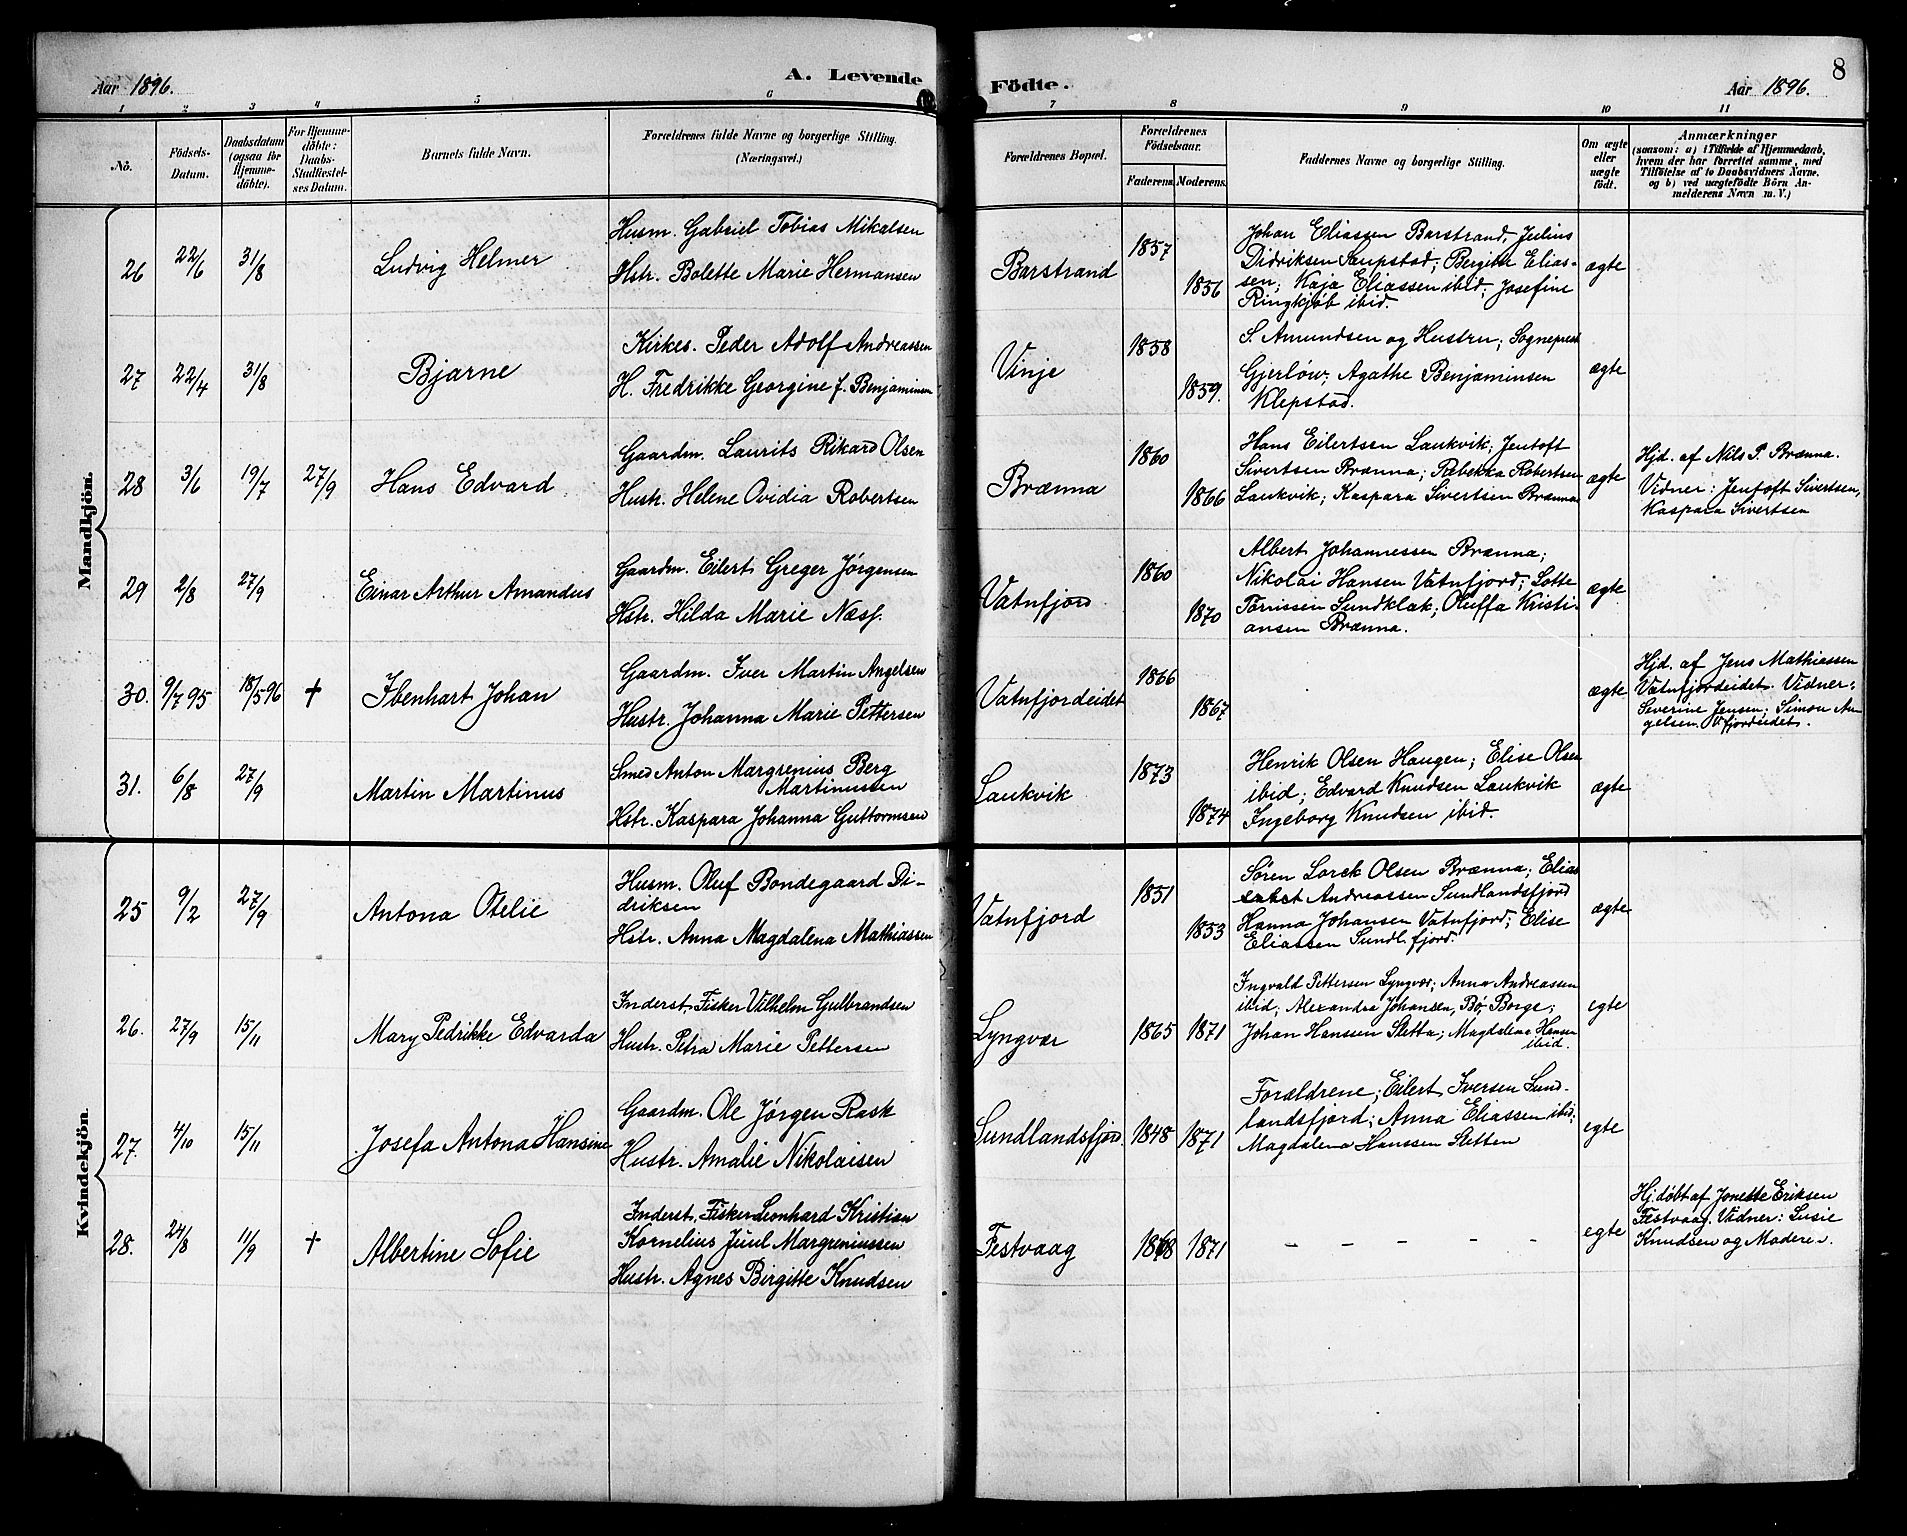 Aar 1896.
A. Levende Födte.
Aar 1896.
8
1 2 3 4 5 6 7 8 9 10 11
No.
Födsels-Datum.
Daabsdatum (ogsaa for Hjemme-döbte).
For Hjemme-döbte: Daabs-Stadfæstel-ses Datum.
Barnets fulde Navn.
Forældrenes fulde Navne og borgerlige Stilling.
(Næringsvei.)
Forældrenes Bopæl.
Forældrenes Födselsaar.
Faderens. Moderens.
Faddernes Navne og borgerlige Stilling.
Om ægte eller uægte födt.
Anmærkninger
(saasom: a) i Tilfælde af Hjemmedaab,
hvem der har forrettet samme, med
Tilföielse af to Daabsvidners Navne.
og b) ved uægtefödte Börn An-
melderens Navn m. V.)
Mandkjön.
26 22/6 31/8 Ludvig Helmer
Husm. Gabriel Tobias Mikalsen
Hstr. Bolette Marie Hermansen
Barstrand 1857 1856
Johan Eliassen Barstrand, Julius
Didriksen Saupstad; Bergitte Elias-
sen; Kaja Eliassen ibid; Josefine
Ringkjøb ibid.
ægte
27 22/4 31/8 Bjarne
Kirkes. Peder Adolf Andreassen
H. Fredrikke Georgine f. Benjaminsen
Vinje 1858 1859.
S. Amundsen og Hustru; Sogneprest
Gjerløw; Agathe Benjaminsen
Klepstad.
ægte
28 3/6 19/7 27/9 Hans Edvard
Gaardm. Laurits Rikard Olsen
Hustr. Helene Ovidia Robertsen
Brænna 1860 1866
Hans Eilertsen Laukvik; Jentoft
Sivertsen Brænna; Rebekka Robertsen
Laukvik; Kaspara Sivertsen Brænna
ægte
Hjd. af Nils P. Brænna.
Vidner: Jentoft Sivertsen,
Kaspara Sivertsen
29 2/8 27/9 Einar Arthur Amandus
Gaardm. Eilert Greger Jørgensen
Hstr. Hilda Marie Næsf.
Vatnfjord 1860 1870
Albert Johannessen Brænna;
Nikolai Hansen Vatnfjord; Lotte
Tørrissen Sundklak; Oluffa Kristi-
ansen Brænna.
ægte
30. 9/7 95 18/5 96 † Ibenhart Johan
Gaardm. Iver Martin Angelsen
Hustr. Johanna Marie Pettersen
Vatnfjordeidet 1866 1867
ægte
Hjd. af Jens Mathiassen
Vatnfjordeidet. Vidner:
Severine Jensen; Simon An-
gelsen Vfjordeidet.
31. 6/8 27/9 Martin Martinus
Smed Anton Margrenius Berg
Martinussen
Hstr. Kaspara Johanna Guttormsen
Laukvik 1873 1874
Henrik Olsen Haugen; Elise Olsen
ibid; Edvard Knudsen Laukvik
Ingeborg Knudsen ibid.
ægte
Kvindekjön.
25 9/2 27/9 Antona Otelie
Husm. Oluf Bondegaard Di-
driksen
Hstr. Anna Magdalena Mathiassen
Vatnfjord 1851 1853
Søren Lorck Olsen Brænna; Elias
Andreassen Sundlandsfjord
Hanna Johansen Vatnfjord; Elise
Eliassen Sundl.fjord.
ægte
26. 27/9 15/11 Mary Pedrikke Edvarda
Inderst, Fisker Vilhelm Gulbrandsen
Hustr. Petra Marie Pettersen
Lyngvær 1865 1871
Ingvald Pettersen Lyngvær; Anna Andreassen
ibid; Alexandra Johansen, Bø, Borge;
Johan Hanssen Sletta; Magdalena Hansen
ibid.
egte
27. 4/10 15/11 Josefa Antona Hansine
Gaardm. Ole Jørgen Rask
Hustr. Amalie Nikolaisen
Sundlandsfjord. 1848 1871
Forældrene; Eilert Iversen Sund-
landsfjord; Anna Eliassen ibid;
Magdalena Hanssen Sletten
egte
28. 24/8 11/9 † Albertine Sofie
Inderst, Fisker Leonhard Kristian
Kornelius Juul Margreniussen
Hustr. Agnes Birgitte Knudsen
Festvaag 1868 1871
– – – – –
egte
Hj.døbt af Jonette Eriksen
Festvaag. Vidner: Lusie
Knudsen og Moderen.